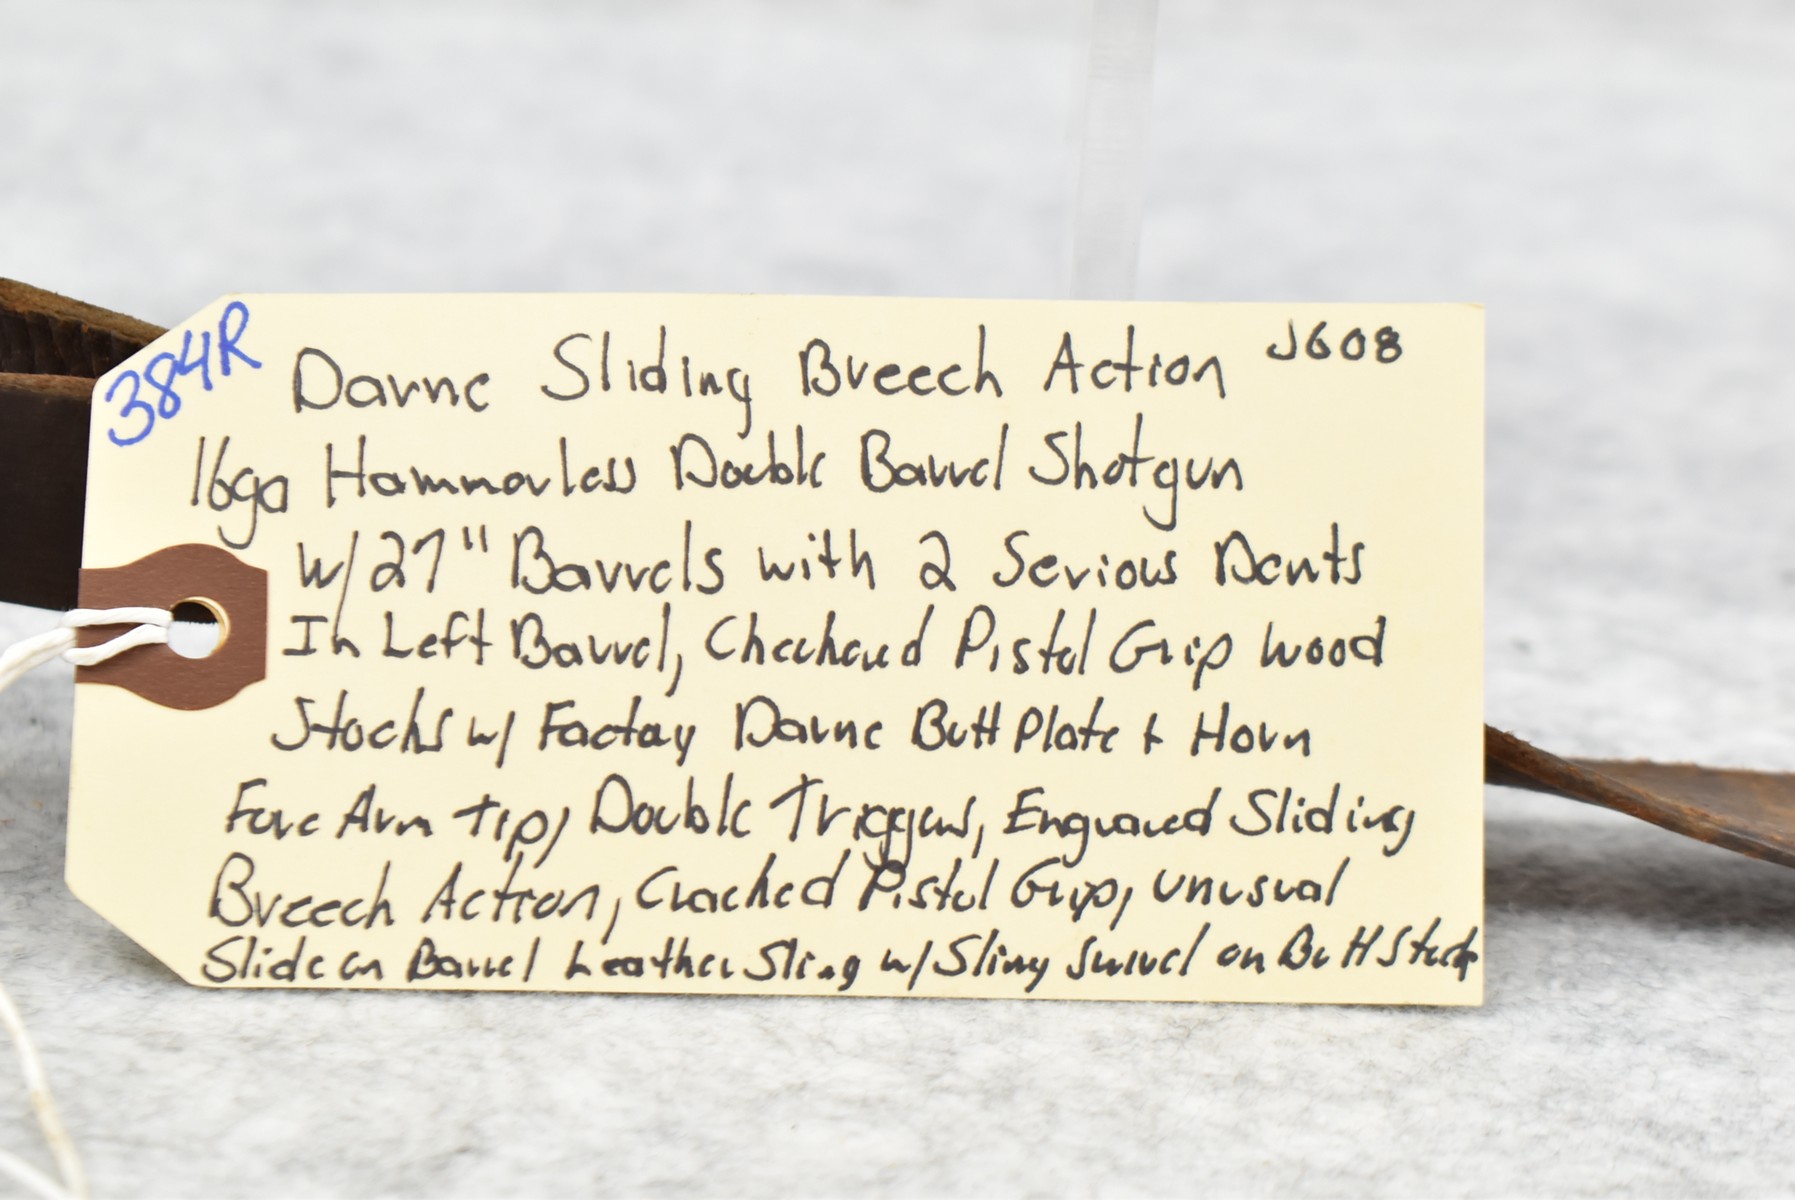 384R
Darne Sliding Breech Action J608
16ga Hammerless Double Barrel Shotgun
W/27" Barrels with 2 Serious Dents
In Left Barrel, Checkered Pistol Grip Wood
Stocks w/ Factory Darne Butt Plate + Horn
Fore Arm Tip, Double Triggers, Engraved Sliding
Breech Action, Cracked Pistol Grip, Unusual
Slide on Barrel Leather Sling w/ Sling Swivel on Butt Stock